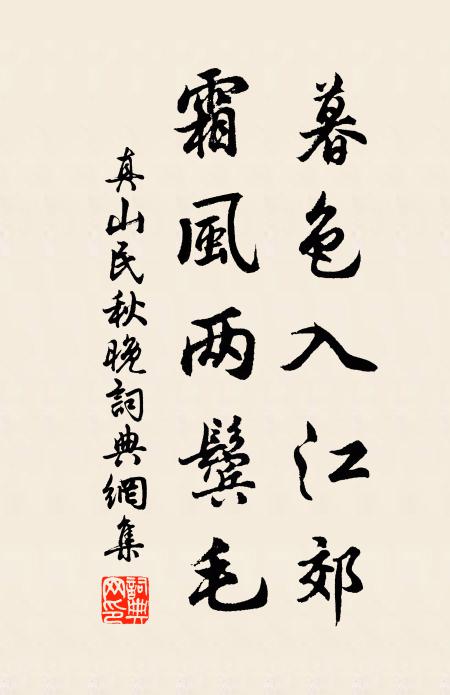 暮色入江郊
霜風两鬓毛
真山民秋晚詞典網集
詞典网印